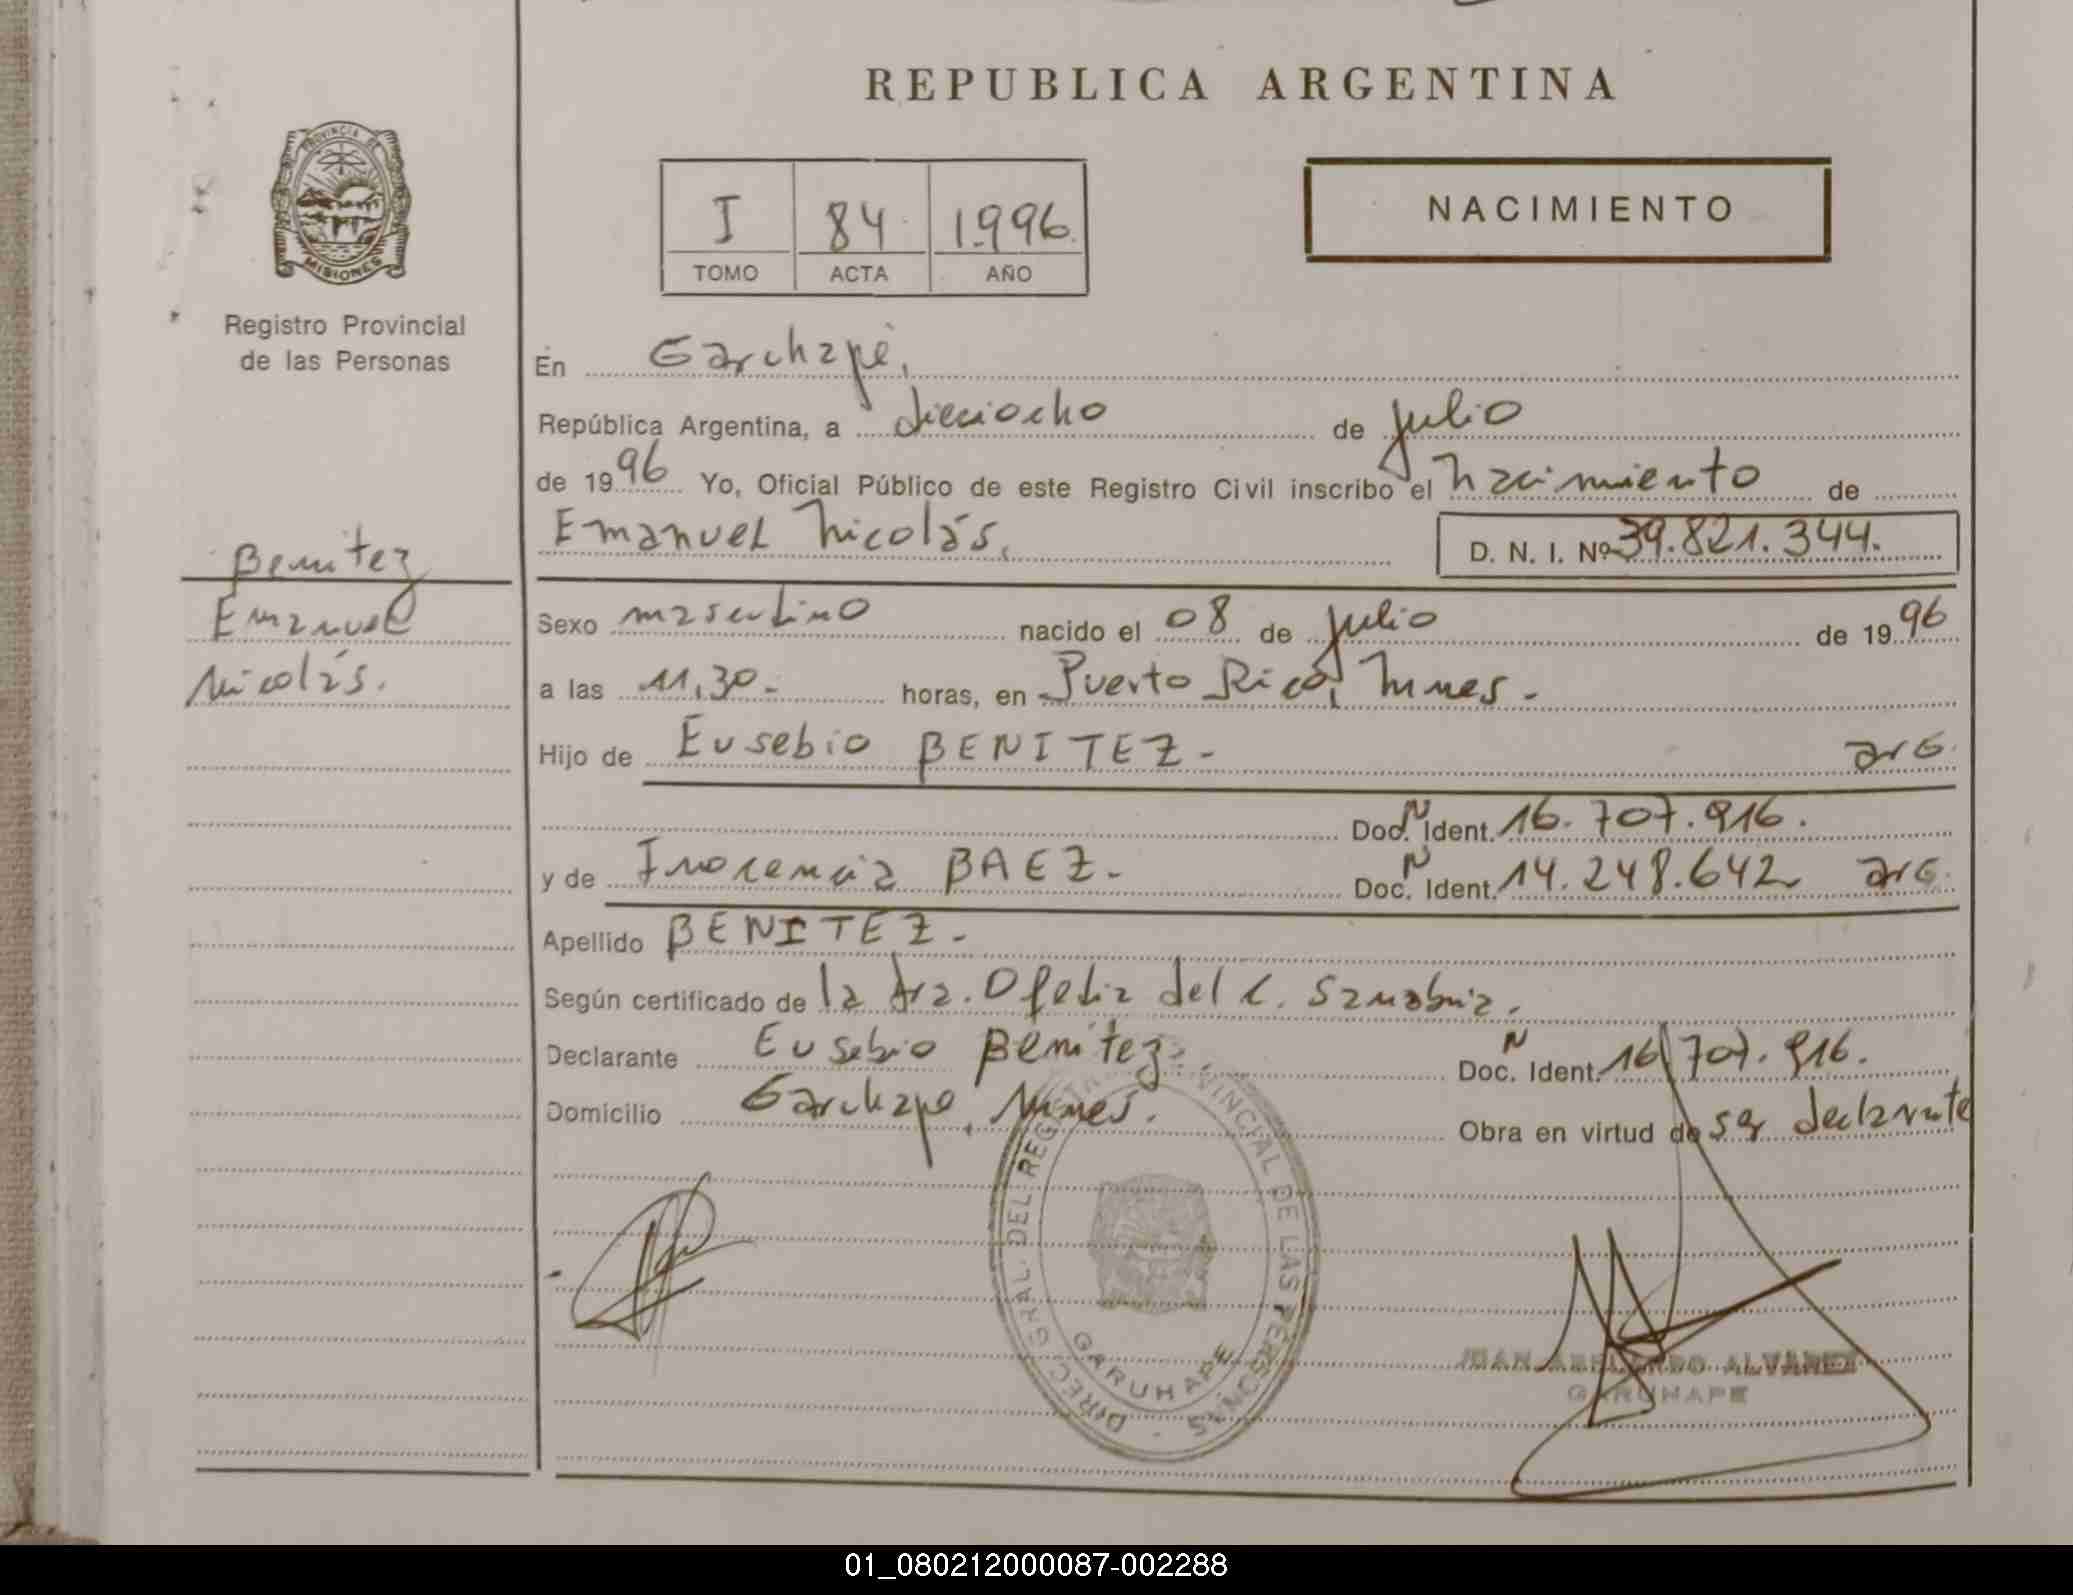 REPUBLICA ARGENTINA
PROVINCIA DE
MISIONES
Registro Provincial
de las Personas
I 84 1.996.
TOMO ACTA AÑO
NACIMIENTO
En Garuhapé,
República Argentina, a dieciocho de julio
de 1996 Yo, Oficial Público de este Registro Civil inscribo el nacimiento de
Emanuel Nicolás. D. N. I. Nº 39.821.344.
Benitez
Emanuel
Nicolás.
Sexo masculino nacido el 08 de julio de 1996
a las 11,30.- horas, en Puerto Rico, Mnes.-
Hijo de Eusebio BENITEZ.- arg.
Doc. N Ident. 16.707.916.
y de Inocencia BAEZ.- Doc. N Ident. 14.248.642 arg.
Apellido BENITEZ.-
Según certificado de la dra. Ofelia del C. Sanabria.
Declarante Eusebio Benitez. Doc. N Ident. 16.707.916.
Domicilio Garuhape, Mnes. Obra en virtud de ser declarante
DIREC. GRAL. DEL REGISTRO PROVINCIAL DE LAS PERSONAS
GARUHAPE
JUAN ABELARDO ALVAREZ
GARUHAPE
01_080212000087-002288